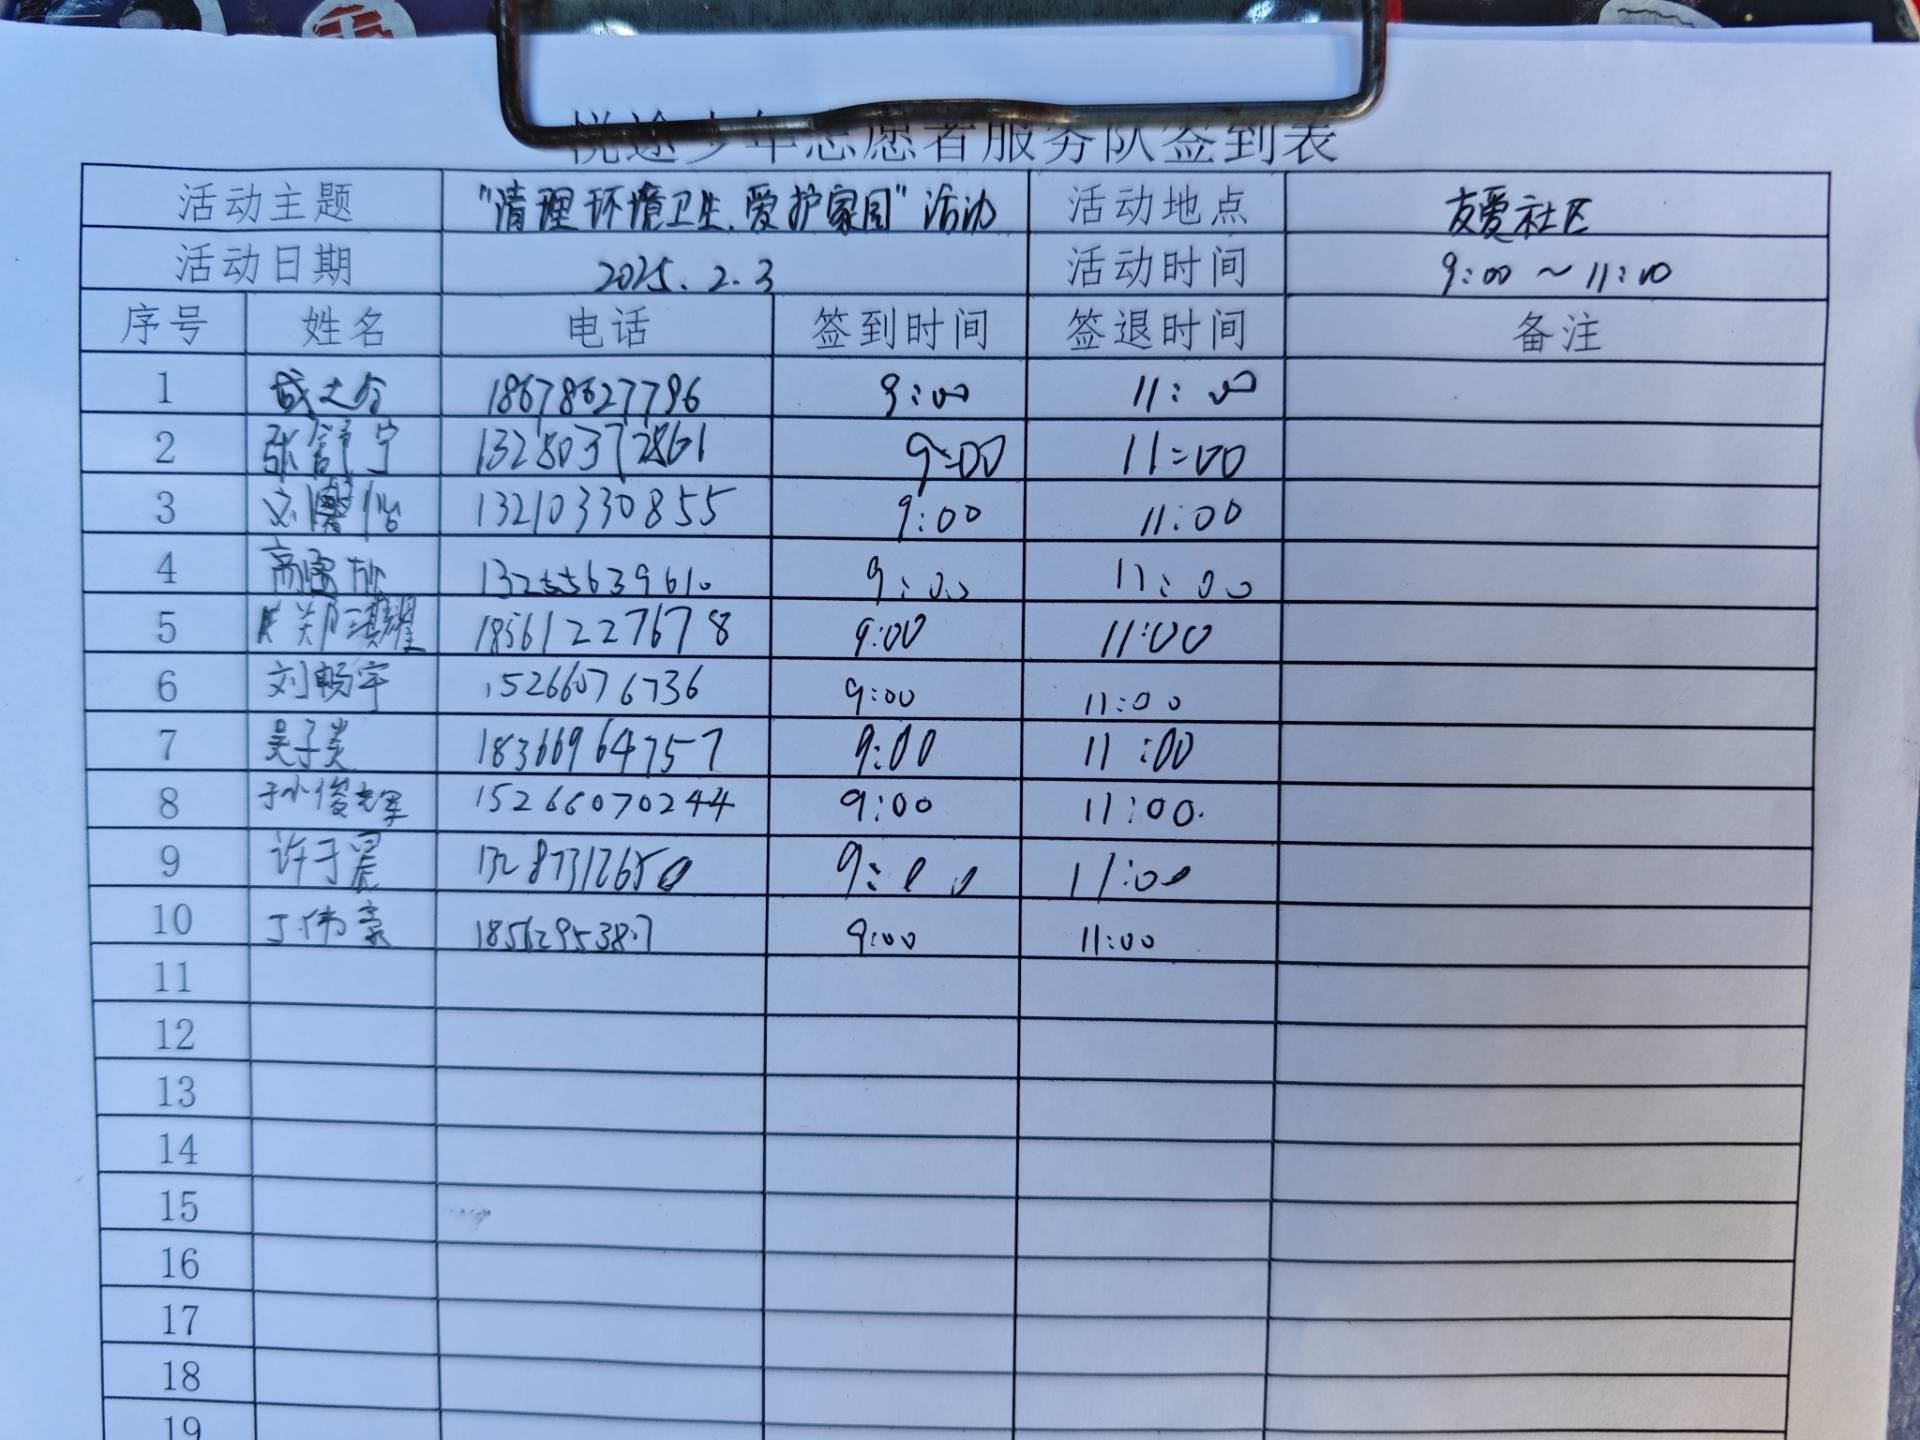 悦途少年志愿者服务队签到表
活动主题 “清理环境卫生.爱护家园”活动 活动地点 友爱社区
活动日期 2025.2.3 活动时间 9:00～11:00
序号 姓名 电话 签到时间 签退时间 备注
1 18678627796 9:00 11:00
2 张舒宁 13280372861 9:00 11:00
3 13210330855 9:00 11:00
4 13255639610 9:00 11:00
5 18561227678 9:00 11:00
6 刘畅宇 15266076736 9:00 11:00
7 吴子炎 18366964757 9:00 11:00
8 孙俊辉 15266070244 9:00 11:00.
9 许子晨 13287312650 9:00 11:00
10 丁伟豪 9:00 11:00
11
12
13
14
15
16
17
18
19